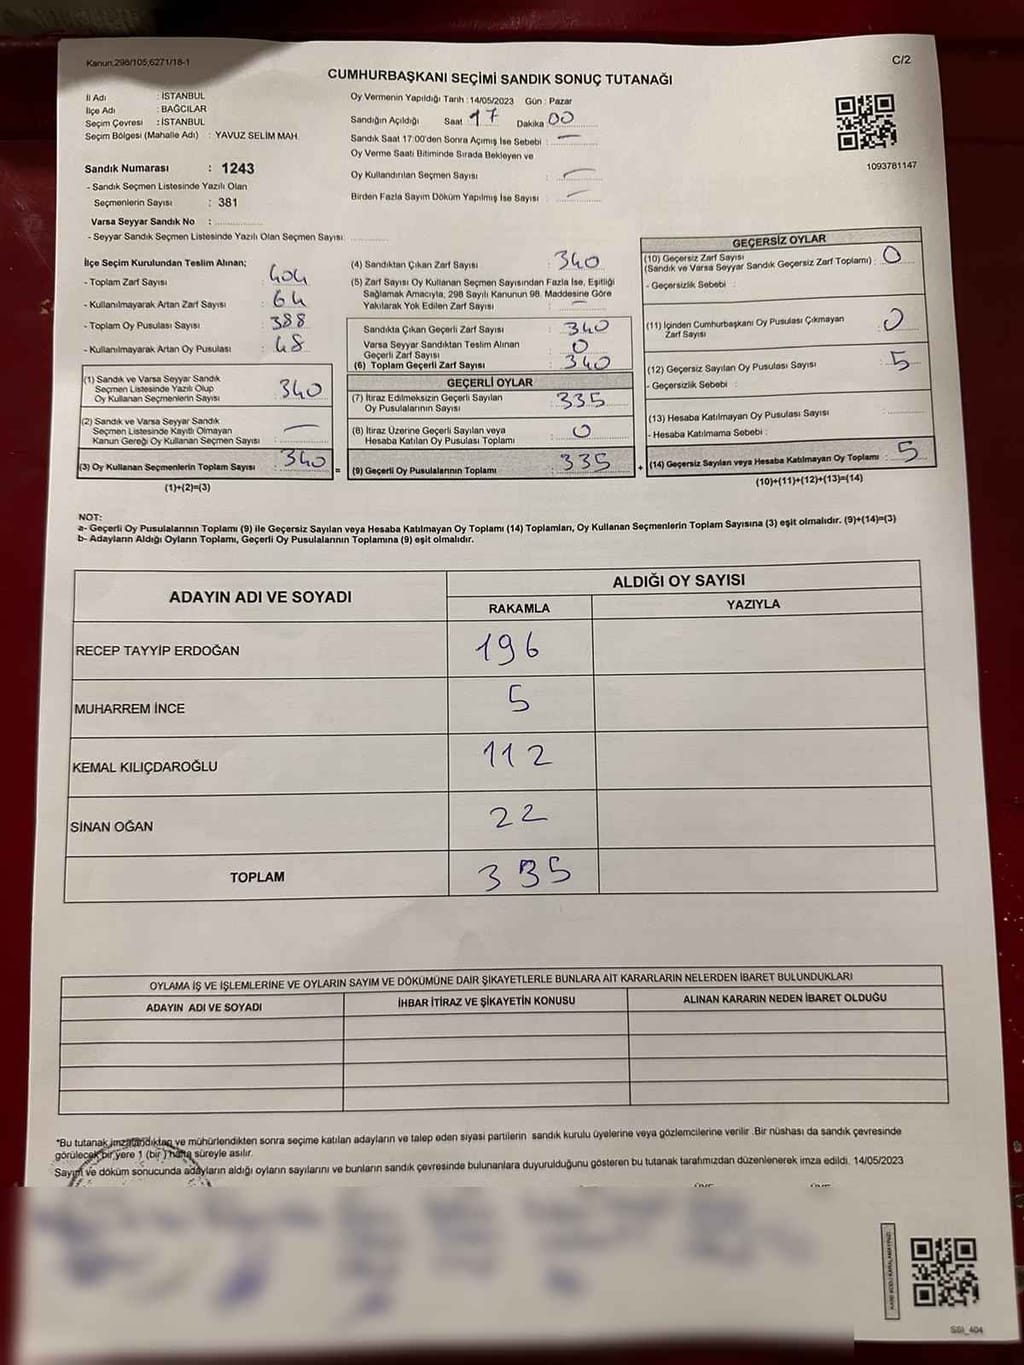 Kanun:298/105;6271/18-1
C/2
CUMHURBAŞKANI SEÇİMİ SANDIK SONUÇ TUTANAĞI
İl Adı : İSTANBUL
İlçe Adı : BAĞCILAR
Seçim Çevresi : İSTANBUL
Seçim Bölgesi (Mahalle Adı) : YAVUZ SELİM MAH.
Sandık Numarası : 1243
- Sandık Seçmen Listesinde Yazılı Olan
Seçmenlerin Sayısı : 381
Varsa Seyyar Sandık No :
- Seyyar Sandık Seçmen Listesinde Yazılı Olan Seçmen Sayısı:
Oy Vermenin Yapıldığı Tarih : 14/05/2023 Gün : Pazar
Sandığın Açıldığı Saat 17 Dakika 00
Sandık Saat 17:00'den Sonra Açımış İse Sebebi : —
Oy Verme Saati Bitiminde Sırada Bekleyen ve
Oy Kullandırılan Seçmen Sayısı : —
Birden Fazla Sayım Döküm Yapılmış İse Sayısı : —
1093781147
İlçe Seçim Kurulundan Teslim Alınan;
- Toplam Zarf Sayısı : 404
- Kullanılmayarak Artan Zarf Sayısı : 64
- Toplam Oy Pusulası Sayısı : 388
- Kullanılmayarak Artan Oy Pusulası : 48
(1) Sandık ve Varsa Seyyar Sandık
Seçmen Listesinde Yazılı Olup
Oy Kullanan Seçmenlerin Sayısı : 340
(2) Sandık ve Varsa Seyyar Sandık
Seçmen Listesinde Kayıtlı Olmayan
Kanun Gereği Oy Kullanan Seçmen Sayısı : —
(3) Oy Kullanan Seçmenlerin Toplam Sayısı : 340
(1)+(2)=(3)
=
(4) Sandıktan Çıkan Zarf Sayısı : 340
(5) Zarf Sayısı Oy Kullanan Seçmen Sayısından Fazla İse, Eşitliği
Sağlamak Amacıyla; 298 Sayılı Kanunun 98. Maddesine Göre
Yakılarak Yok Edilen Zarf Sayısı : —
Sandıkta Çıkan Geçerli Zarf Sayısı : 340
Varsa Seyyar Sandıktan Teslim Alınan
Geçerli Zarf Sayısı : 0
(6) Toplam Geçerli Zarf Sayısı : 340
GEÇERLİ OYLAR
(7) İtiraz Edilmeksizin Geçerli Sayılan
Oy Pusulalarının Sayısı : 335
(8) İtiraz Üzerine Geçerli Sayılan veya
Hesaba Katılan Oy Pusulası Toplamı : 0
(9) Geçerli Oy Pusulalarının Toplamı : 335
+
GEÇERSİZ OYLAR
(10) Geçersiz Zarf Sayısı
(Sandık ve Varsa Seyyar Sandık Geçersiz Zarf Toplamı) : 0
- Geçersizlik Sebebi :
(11) İçinden Cumhurbaşkanı Oy Pusulası Çıkmayan
Zarf Sayısı : 0
(12) Geçersiz Sayılan Oy Pusulası Sayısı : 5
- Geçersizlik Sebebi :
(13) Hesaba Katılmayan Oy Pusulası Sayısı :
- Hesaba Katılmama Sebebi :
(14) Geçersiz Sayılan veya Hesaba Katılmayan Oy Toplamı : 5
(10)+(11)+(12)+(13)=(14)
NOT:
a- Geçerli Oy Pusulalarının Toplamı (9) ile Geçersiz Sayılan veya Hesaba Katılmayan Oy Toplamı (14) Toplamları, Oy Kullanan Seçmenlerin Toplam Sayısına (3) eşit olmalıdır. (9)+(14)=(3)
b- Adayların Aldığı Oyların Toplamı, Geçerli Oy Pusulalarının Toplamına (9) eşit olmalıdır.
ADAYIN ADI VE SOYADI
ALDIĞI OY SAYISI
RAKAMLA YAZIYLA
RECEP TAYYİP ERDOĞAN 196
MUHARREM İNCE 5
KEMAL KILIÇDAROĞLU 112
SİNAN OĞAN 22
TOPLAM 335
OYLAMA İŞ VE İŞLEMLERİNE VE OYLARIN SAYIM VE DÖKÜMÜNE DAİR ŞİKAYETLERLE BUNLARA AİT KARARLARIN NELERDEN İBARET BULUNDUKLARI
ADAYIN ADI VE SOYADI İHBAR İTİRAZ VE ŞİKAYETİN KONUSU ALINAN KARARIN NEDEN İBARET OLDUĞU
*Bu tutanak imzalandıktan ve mühürlendikten sonra seçime katılan adayların ve talep eden siyasi partilerin sandık kurulu üyelerine veya gözlemcilerine verilir. Bir nüshası da sandık çevresinde
görülecek bir yere 1 (bir) hafta süreyle asılır.
Sayım ve döküm sonucunda adayların aldığı oyların sayılarını ve bunların sandık çevresinde bulunanlara duyurulduğunu gösteren bu tutanak tarafımızdan düzenlenerek imza edildi. 14/05/2023
SSI_404